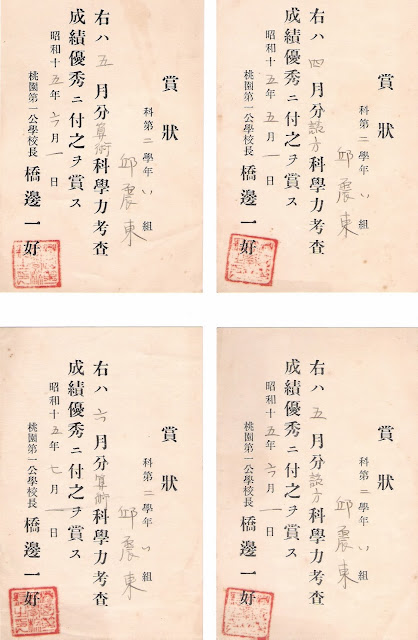 賞狀
科第二學年い組
邱震東
右ハ四月分讀方科學力考査
成績優秀ニ付之ヲ賞ス
昭和十五年五月一日
桃園第一公學校長 橋邊一好
賞狀
科第二學年い組
邱震東
右ハ五月分算術科學力考査
成績優秀ニ付之ヲ賞ス
昭和十五年六月一日
桃園第一公學校長 橋邊一好
賞狀
科第二學年い組
邱震東
右ハ五月分讀方科學力考査
成績優秀ニ付之ヲ賞ス
昭和十五年六月一日
桃園第一公學校長 橋邊一好
賞狀
科第二學年い組
邱震東
右ハ六月分算術科學力考査
成績優秀ニ付之ヲ賞ス
昭和十五年七月一日
桃園第一公學校長 橋邊一好